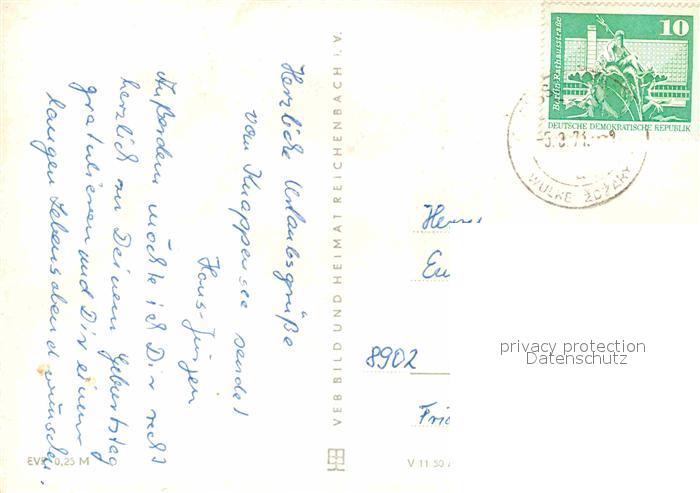 Herzliche Urlaubsgrüße
vom Knappensee sendet
Hans-Jürgen
Außerdem möchte ich Dir recht
herzlich zu Deinem Geburtstag
gratulieren und Dir einen
langen Lebensabend wünschen.
EVP 0,25 M
VEB BILD UND HEIMAT REICHENBACH i. V.
V 11 50
10
Berlin-Rathausstraße
DEUTSCHE DEMOKRATISCHE REPUBLIK
WULKE ŽDŽARY
8902
privacy protection
Datenschutz